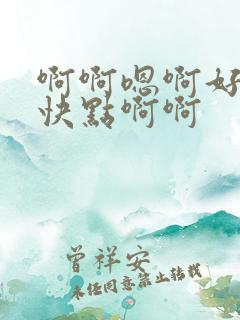 啊啊嗯啊好
快點啊啊
曾祥安
未经同意禁止转载